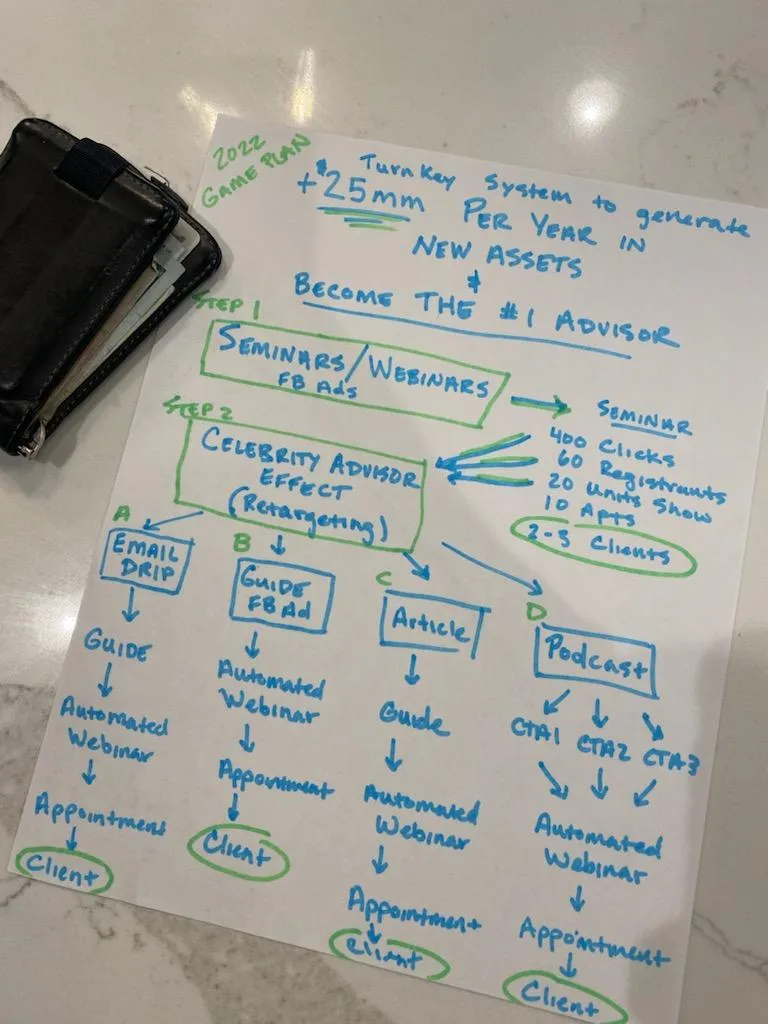 2022
GAME PLAN
Turnkey System to generate
+$25mm PER YEAR IN
NEW ASSETS
&
BECOME THE #1 ADVISOR
STEP 1
SEMINARS/WEBINARS
FB Ads
SEMINAR
400 Clicks
60 Registrants
20 Units Show
10 Apts
2-3 Clients
STEP 2
CELEBRITY ADVISOR
EFFECT
(Retargeting)
A
EMAIL
DRIP
GUIDE
Automated
Webinar
Appointment
Client
B
GUIDE
FB Ad
Automated
Webinar
Appointment
Client
C
Article
Guide
Automated
Webinar
Appointment
Client
D
Podcast
CTA1 CTA2 CTA3
Automated
Webinar
Appointment
Client